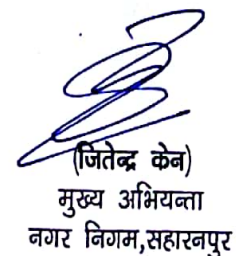 (जितेन्द्र केन)
मुख्य अभियन्ता
नगर निगम,सहारनपुर